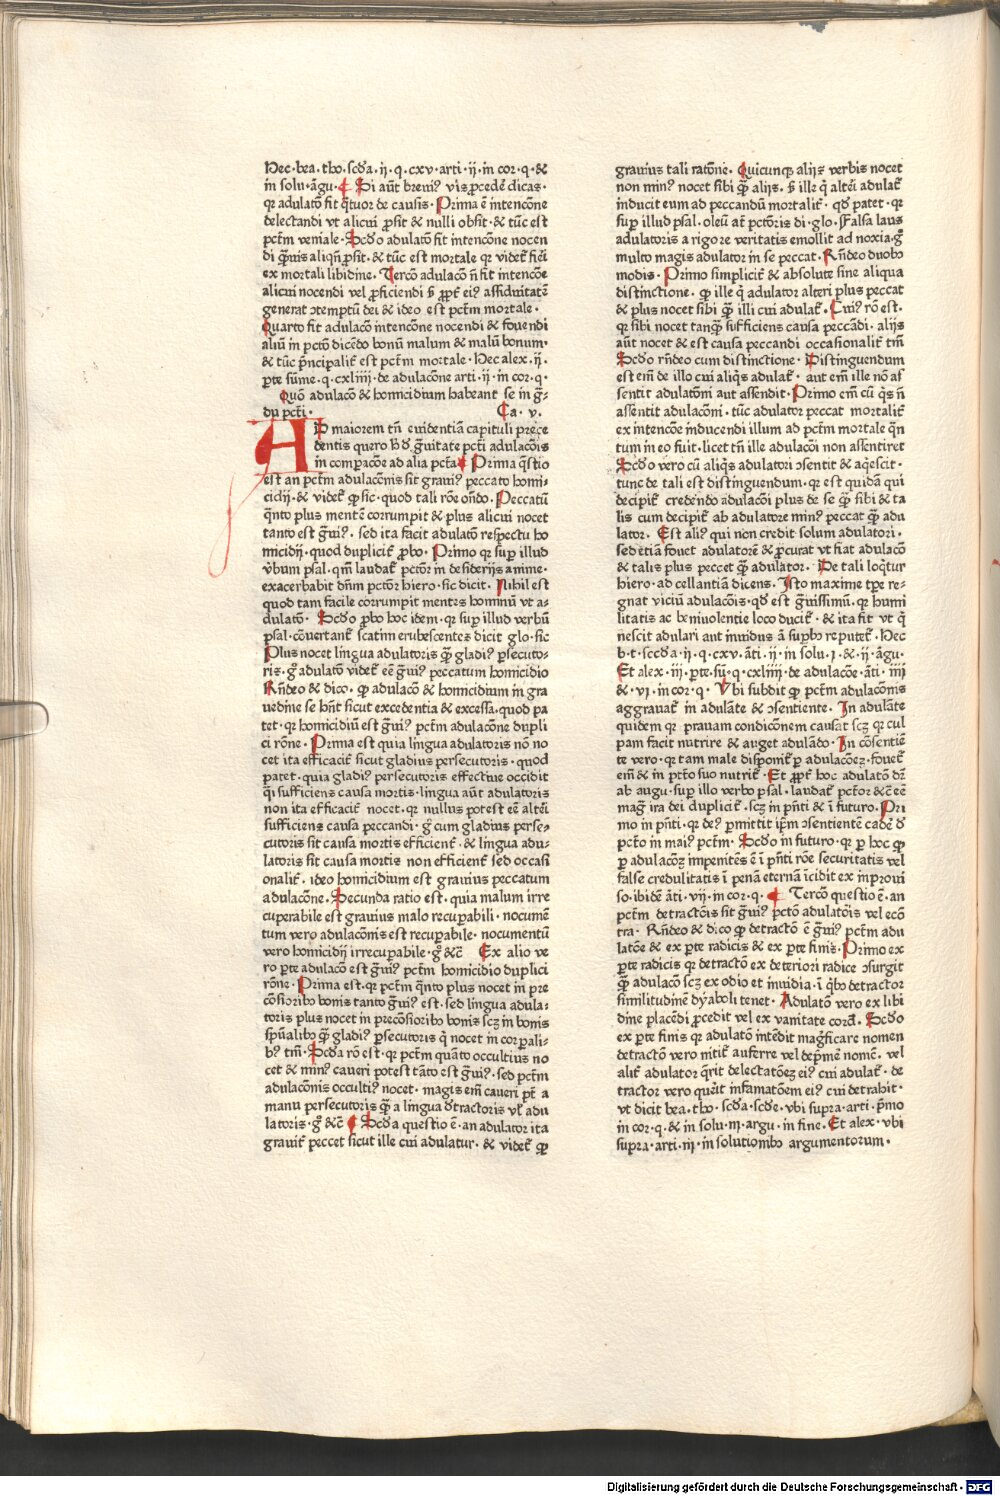 Hec·bea·tho·scd̄a·ij·q·cxv·arti·ij·in cor·q·&
in solu·ãgu· ¶ Si aũt breuiꝰ vis ꝓcedẽ dicas·
qr adulatõ fit q̃tuor de causis· Prima ẽ intencõne
delectandi vt alicui ꝓsit & nulli obsit·& tũc est
pctm̃ veniale· Scd̄o adulatõ fit intencõne nocen
di q̃uis aliqñ ꝓsit·& tũc est mortale qr videt̃ fieri
ex mortali libidine· Tercõ adulacõ ñ fit intencõe
alicui nocendi vel ꝓficiendi s̃ ꝓpt̃ eiꝰ assiduitatẽ
generat ↄtemptũ dei & ideo est pctm̃ mortale·
Quarto fit adulacõ intencõne nocendi & fouendi
aliũ in pctõ dicẽdo bonũ malum & malũ bonum·
& tũc p̃ncipalit̃ est pctm̃ mortale·Hec alex·ij·
ꝑte sũme·q·cxliiij·de adulacõne arti·ij·in cor·q·
Quõ adulacõ & homicidium habeant se in g̃·
du pctĩ· Ca·v·
AD maiorem tñ euidentiã capituli prece
dentis quero v̄ d̄ g̃uitate pctĩ adulacõis
in comparacõe ad alia pctã ¶ Prima q̃stio
est an pctm̃ adulacõnis sit grauiꝰ peccato homi
cidij·& videt̃ ꝙ sic·quod tali rõe oñdo· Peccatũ
q̃nto plus mentẽ corrumpit & plus alicui nocet
tanto est g̃uiꝰ·sed ita facit adulatõ respectu ho
micidij·quod duplicit̃ ꝓbo· Primo qr suꝑ illud
v̄bum psal·qm̃ laudat̃ pctõr in desiderijs anime·
exacerbabit dñm pctõr hiero·sic dicit· Nihil est
quod tam facile corrumpit mentes hominũ vt a-
dulatõ· Scd̄o ꝓbo hoc idem·qr suꝑ illud verbũ
psal·cõuertant̃ statim erubescentes dicit glo·sic
Plus nocet lingua adulatoris q̃ȝ gladiꝰ ꝑsecuto-
ris·g̃ adulatõ videt̃ eẽ g̃uiꝰ peccatum homicidio
Rñdeo & dico· ꝙ adulacõ & homicidium in gra
uedine se hñt sicut excedentia & excessa·quod pa
tet·qr homicidiũ est g̃uiꝰ pctm̃ adulacõne dupli
ci rõne· Prima est quia lingua adulatoris nõ no
cet ita efficacit̃ sicut gladius persecutoris·quod
patet·quia gladiꝰ persecutoris effectiue occidit
q̃i sufficiens causa mortis·lingua aũt adulatoris
non ita efficacit̃ nocet·qr nullus potest eẽ alteri
sufficiens causa peccandi·g̃ cum gladius perse-
cutoris sit causa mortis efficient̃·& lingua adu-
latoris sit causa mortis non efficient̃ sed occasi
onalit̃·ideo homicidium est grauius peccatum
adulacõne· Secunda ratio est·quia malum irre
cuperabile est grauius malo recuꝑabili·nocumẽ
tum vero adulacõnis est recuꝑabile·nocumentũ
vero homicidij irrecuꝑabile·g̃ &c̃ Ex alio ve
ro ꝑte adulacõ est g̃uiꝰ pctm̃ homicidio duplici
rõne· Prima est·qr pctm̃ q̃nto plus nocet in pre
cõsioribꝰ bonis tanto g̃uiꝰ est·sed lingua adula-
toris plus nocet in precõsioribꝰ bonis scȝ in bonis
sp̃ualibꝰ q̃ȝ gladiꝰ ꝑsecutoris q̃ nocet in corꝑali-
bꝰ tm̃· Scd̄a rõ est·qr pctm̃ quãto occultius no
cet & minꝰ caueri potest tãto est g̃uiꝰ·sed pctm̃
adulacõnis occultiꝰ nocet·magis em̃ caueri pt̃ a
manu persecutoris q̃ȝ a lingua d̄tractoris vl̃ adu
latoris·g̃ &c̃ ¶ Scd̄a questio ẽ·an adulator ita
grauit̃ peccet sicut ille cui adulatur·& videt̃ ꝙ
grauius tali ratõne· Quicunqȝ alijs verbis nocet
non minꝰ nocet sibi q̃ȝ alijs·s̃ ille q̃ alteri adulat̃
inducit eum ad peccandũ mortalit̃·qd̃ patet·qr
suꝑ illud psal·oleũ aũt pctõris di·glo·Falsa laus
adulatoris a rigore veritatis emollit ad noxia·g̃
multo magis adulator in se peccat· Rñdeo duobꝰ
modis· Primo simplicit̃ & absolute sine aliqua
distinctione· ꝙ ille q̃ adulator alteri plus peccat
& plus nocet sibi q̃ȝ illi cui adulat̃· Cuiꝰ rõ est·
qr sibi nocet tanqȝ̃ sufficiens causa peccãdi·alijs
aũt nocet & est causa peccandi occasionalit̃ tm̃
Scd̄o rñdeo cum distinctione· Distinguendum
est em̃ de illo cui aliq̃s adulat̃·aut em̃ ille nõ as
sentit adulatõni aut assendit· Primo em̃ cũ q̃s ñ
assẽtit adulacõni·tũc adulator peccat mortalit̃
ex intencõne inducendi illum ad pctm̃ mortale q̃n
tum in eo fuit·licet tñ ille adulacõi non assentiret
Scd̄o vero cũ aliq̃s adulatori ↄsentit & aq̃escit·
tunc de tali est distinguendum·qr est quidã qui
decipit̃ credendo adulacõi plus de se q̃ȝ sibi & ta
lis cum decipit̃ ab adulatore minꝰ peccat q̃ȝ adu
lator· Est aliꝰ qui non credit solum adulatori·
sed etiã fouet adulatorẽ & ꝓcurat vt fiat adulacõ
& talis plus peccet q̃ȝ adulator· De tali loq̃tur
hiero·ad cellantiã dicens· Isto maxime tꝑe re-
gnat viciũ adulacõis·qd̃ est g̃uissimũ·qr humi
litatis ac beniuolentie loco ducit̃·& ita fit vt q̃
nescit adulari aut inuidus ã suꝑbꝰ reputet̃·Hec
b·t·sccd̃a·ij·q·cxv·ãti·ij·in solu·i·& ij·ãgu·
Et alex·iij·ꝑte·sũ·q·cxliiij·de adulacõe·ãti·iiij
&·vi·in cor·q· Vbi subdit ꝙ pctm̃ adulacõnis
aggrauat̃ in adulãte & ↄsentiente· In adulãte
quidem qr prauam condicõnem causat scȝ qr cul
pam facit nutrire & auget adulãdo· In cõsentiẽ
te vero·qr tam male disponit̃ ꝑ adulacõeȝ·fouet̃
em̃ & in pctõ suo nutrit̃· Et ꝓpt̃ hoc adulatõ dr̃
ab augu·suꝑ illo verbo psal·laudat̃ pctõr &c̃ eẽ
magñ ira dei duplicit̃·scȝ in p̃nti & ĩ futuro· Pri
mo in p̃nti·qr deꝰ ꝑmittit ip̃m ↄsentientẽ cadẽ d̄
pctõ in maiꝰ pctm̃· Scd̄o in futuro·qr ꝑ hoc ꝙ
ꝑ adulacõȝ impenitẽs ẽ ĩ p̃nti rõe securitatis vel
false credulitatis ĩ penã eternã ĩcidit ex improui
so·ibidẽ ãti·vij·in cor·q· ¶ Tercõ questio ẽ·an
pctm̃ detractõis sit g̃uiꝰ pctõ adulatõis vel ecõ
tra· Rñdeo & dico ꝙ detractõ ẽ g̃uiꝰ pctm̃ adu
latõe & ex ꝑte radicis & ex ꝑte finis· Primo ex
ꝑte radicis qr detractõ ex deteriori radice ↄsurgit
q̃ȝ adulacõ scȝ ex odio et inuidia·ĩ q̃bꝰ detractor
similitudinẽ dyaboli tenet· Adulatõ vero ex libi
dine placẽdi ꝓcedit vel ex vanitate cord̃· Scd̄o
ex ꝑte finis qr adulatõ intẽdit mag̃ficare nomen
detractõ vero nitit̃ auferre vel dep̃mẽ nomẽ·vel
alit̃ adulator q̃rit delectatõeȝ eiꝰ cui adulat̃·de
tractor vero querit infamatõem eiꝰ cui detrahit·
vt dicit bea·tho·scd̄a·scd̄e·vbi supra·arti·p̃mo
in cor·q·& in solu·iij·argu·in fine· Et alex·vbi
supra·arti·iij·in solutionibꝰ argumentorum·
Digitalisierung gefördert durch die Deutsche Forschungsgemeinschaft - DFG